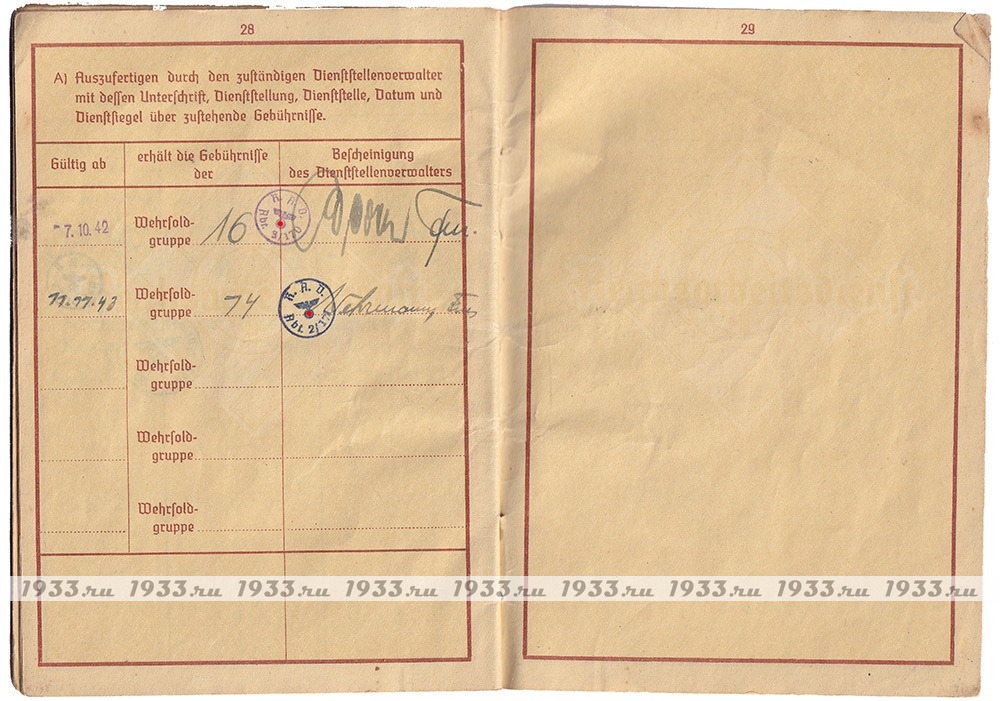 28
A) Auszufertigen durch den zuständigen Dienststellenverwalter
mit dessen Unterschrift, Dienststellung, Dienststelle, Datum und
Dienstsiegel über zustehende Gebührnisse.
Gültig ab
erhält die Gebührnisse
der
Bescheinigung
des Dienststellenverwalters
7.10.42
Wehrsold-
gruppe 16
R.A.D.
Abt.
11.11.43
Wehrsold-
gruppe 14
R.A.D.
Abt. 2/
Wehrsold-
gruppe
Wehrsold-
gruppe
Wehrsold-
gruppe
29
1933.ru 1933.ru 1933.ru 1933.ru 1933.ru 1933.ru 1933.ru 1933.ru 1933.ru